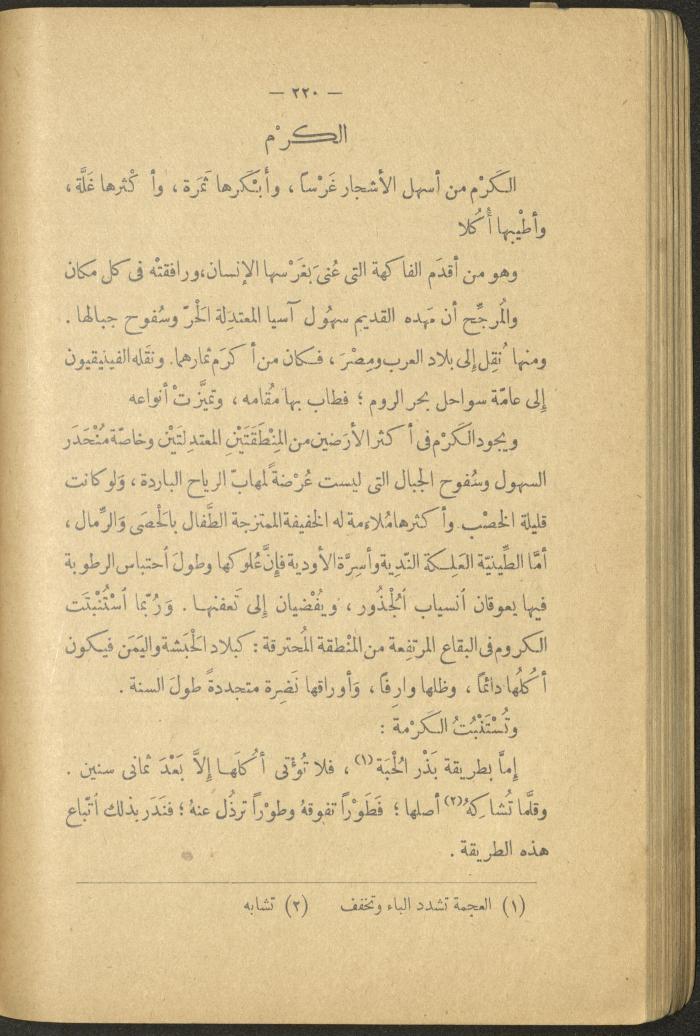 — ٢٢٠ —
الكرْم
الكَرْم من أسهل الأشجار غَرْساً ، وأبْكَرها ثَمَرة ، وأ كْثرها غَلَّة ،
وأطْيبها أُكُلا
وهو من أقدَم الفاكهة التى عُنىَ بَغَرْسها الإنسان، ورافقتْه فى كل مكان
والمُرجِّح أن مَهده القديم سهُول آسيا المعتدِلة الحَرّ وسُفوح جبالها .
ومنها نُقِل إلى بلاد العرب ومِصْرَ ، فكان من أكرَم ثمارهما. ونقَله الفينيقيون
إلى عامّة سواحل بحر الروم ؛ فطاب بها مُقامه ، وتميَّزتْ أنواعه
ويجود الكَرْم فى أكثر الأرَضين من المِنْطَقَتَيْنِ المعتدِلتَيْن وخاصّة مُنْحَدَر
السهول وسُفوح الجبال التى ليست عُرْضةً لمهابّ الرياح الباردة ، وَلو كانت
قليلة الخصْب . وأكثرها مُلاءمة له الخفيفة الممتزجة الطَّفال بالحَصَى وَالرِّمال ،
أمَّا الطِّينيّة العَلِكة النّدِية وأسِرَّة الأودية فإنَّ عُلوكها وطولَ أحتباس الرطوبة
فيها يعوقان أنسياب الجُذُور ، ويُفْضيان إلى تَعفنها . وَرُبّما أسْتُنْبتَت
الكروم فى البقاع المرتفِعة من المنْطقة المُحترقة : كبلاد الحَبَشة واليَمَن فيكون
أُكُلُها دائمًا ، وظلها وارِفًا ، وَأوراقها نَضِرة متجددةً طولَ السنة .
وتُسْتَنْبُتُ الكَرْمة :
إمّا بطريقة بَذْر الحُبَة (١) ، فلا تُؤْتى أكُلَها إلاَّ بَعْدَ ثمانى سنين .
وقلَّما تُشاكهُ (٢) أصلها ؛ فَطَوْراً تفوقهُ وطوْراً ترذُل عنهُ ؛ فنَدَر بذلك اتّباع
هذه الطريقة .
(١) العجمة تشدد الباء وتخفف (٢) تشابه